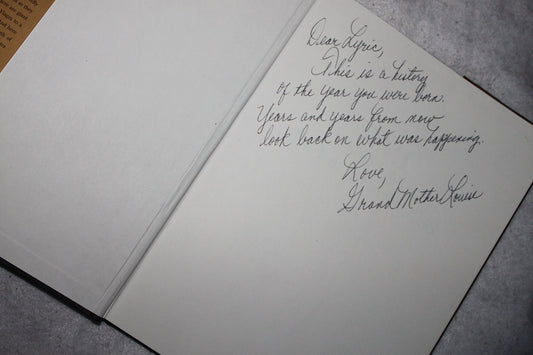 Dear Lyric,
This is a history
of the year you were born.
Years and years from now
look back on what was happening.
Love,
Grand Mother Louise